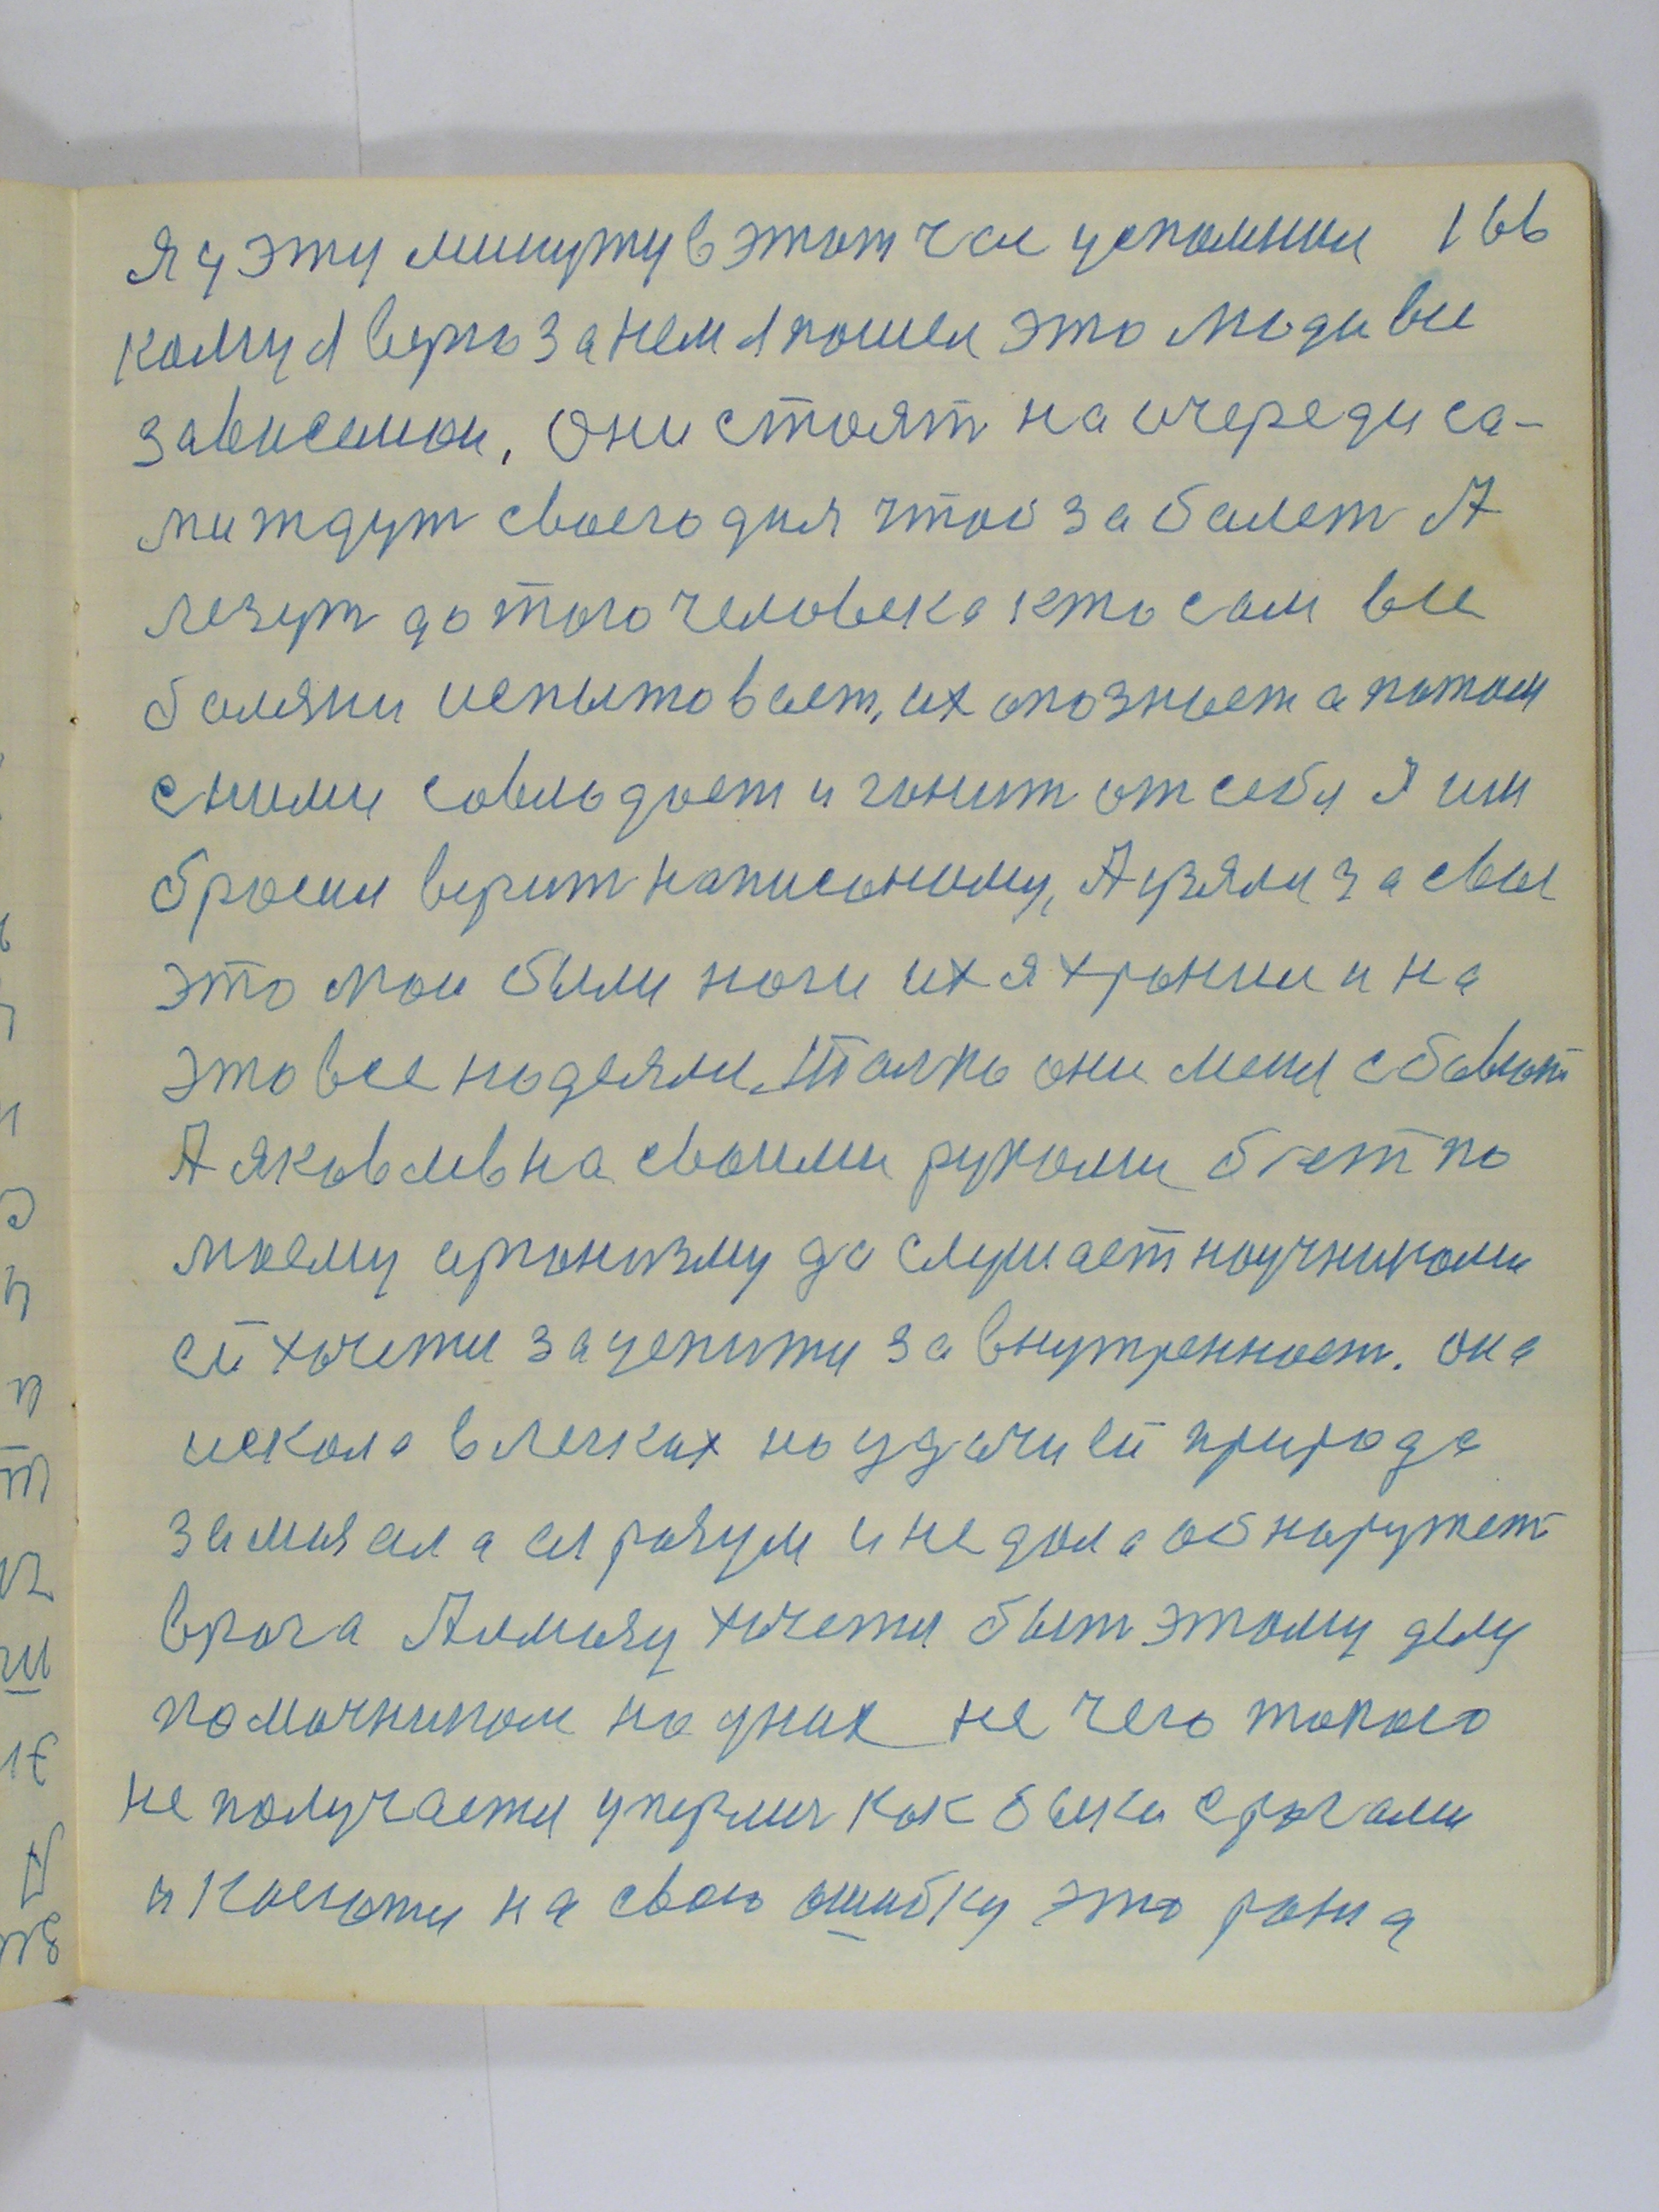 Я у эту минуту в этот час успомнил 166
кому я верю за кем я пошел это люди все
зависемои, Они стоят на очереди са-
ми ждут своего дня чтоб заболет А
лезут до того человека кто сам все
болязни испытовает, их опознает а потом
с ними совлодает и гонит от себя Я им
бросил верит написоному, А узяли за свое
это мои были ноги их я хронил и на
это все надеялся, Толко они меня
А яковлевна своими руками бет по
моему арганизму да слушает научниками
ей хочется зацепится за внутренност. она
искала в легких но удачи ей природа
замоя разум и не дала обнаружет
врача хочется быт этому делу
помочником но у них не чего токого
не получается уперлис как быки срогами
и на свою ошибку это рана